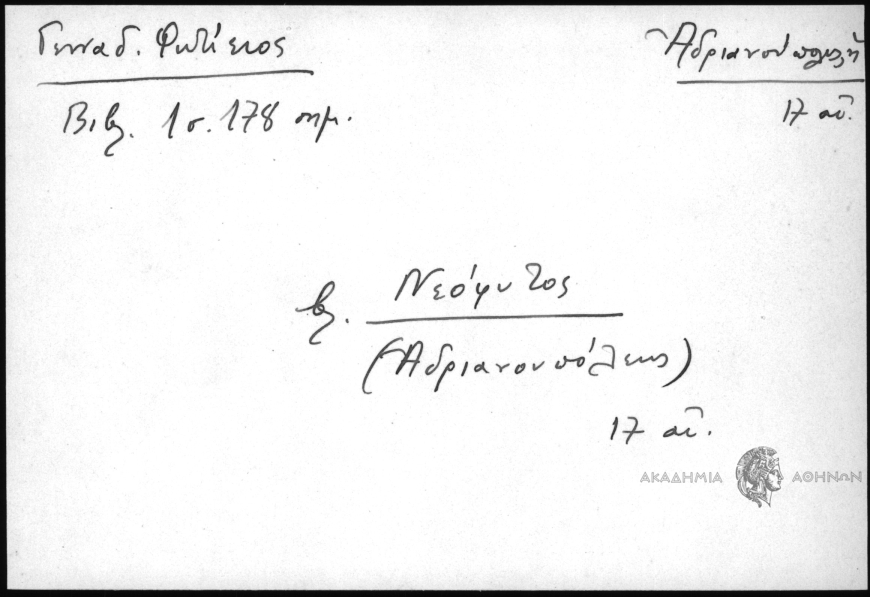 Γενναδ. Φωτίειος
Ἀδριανούπολη
Βιβλ. 1 σ. 178 σημ.
17 αἰ.
βλ. Νεόφυτος
(Ἀδριανουπόλεως)
17 αἰ.
ΑΚΑΔΗΜΙΑ ΑΘΗΝΩΝ